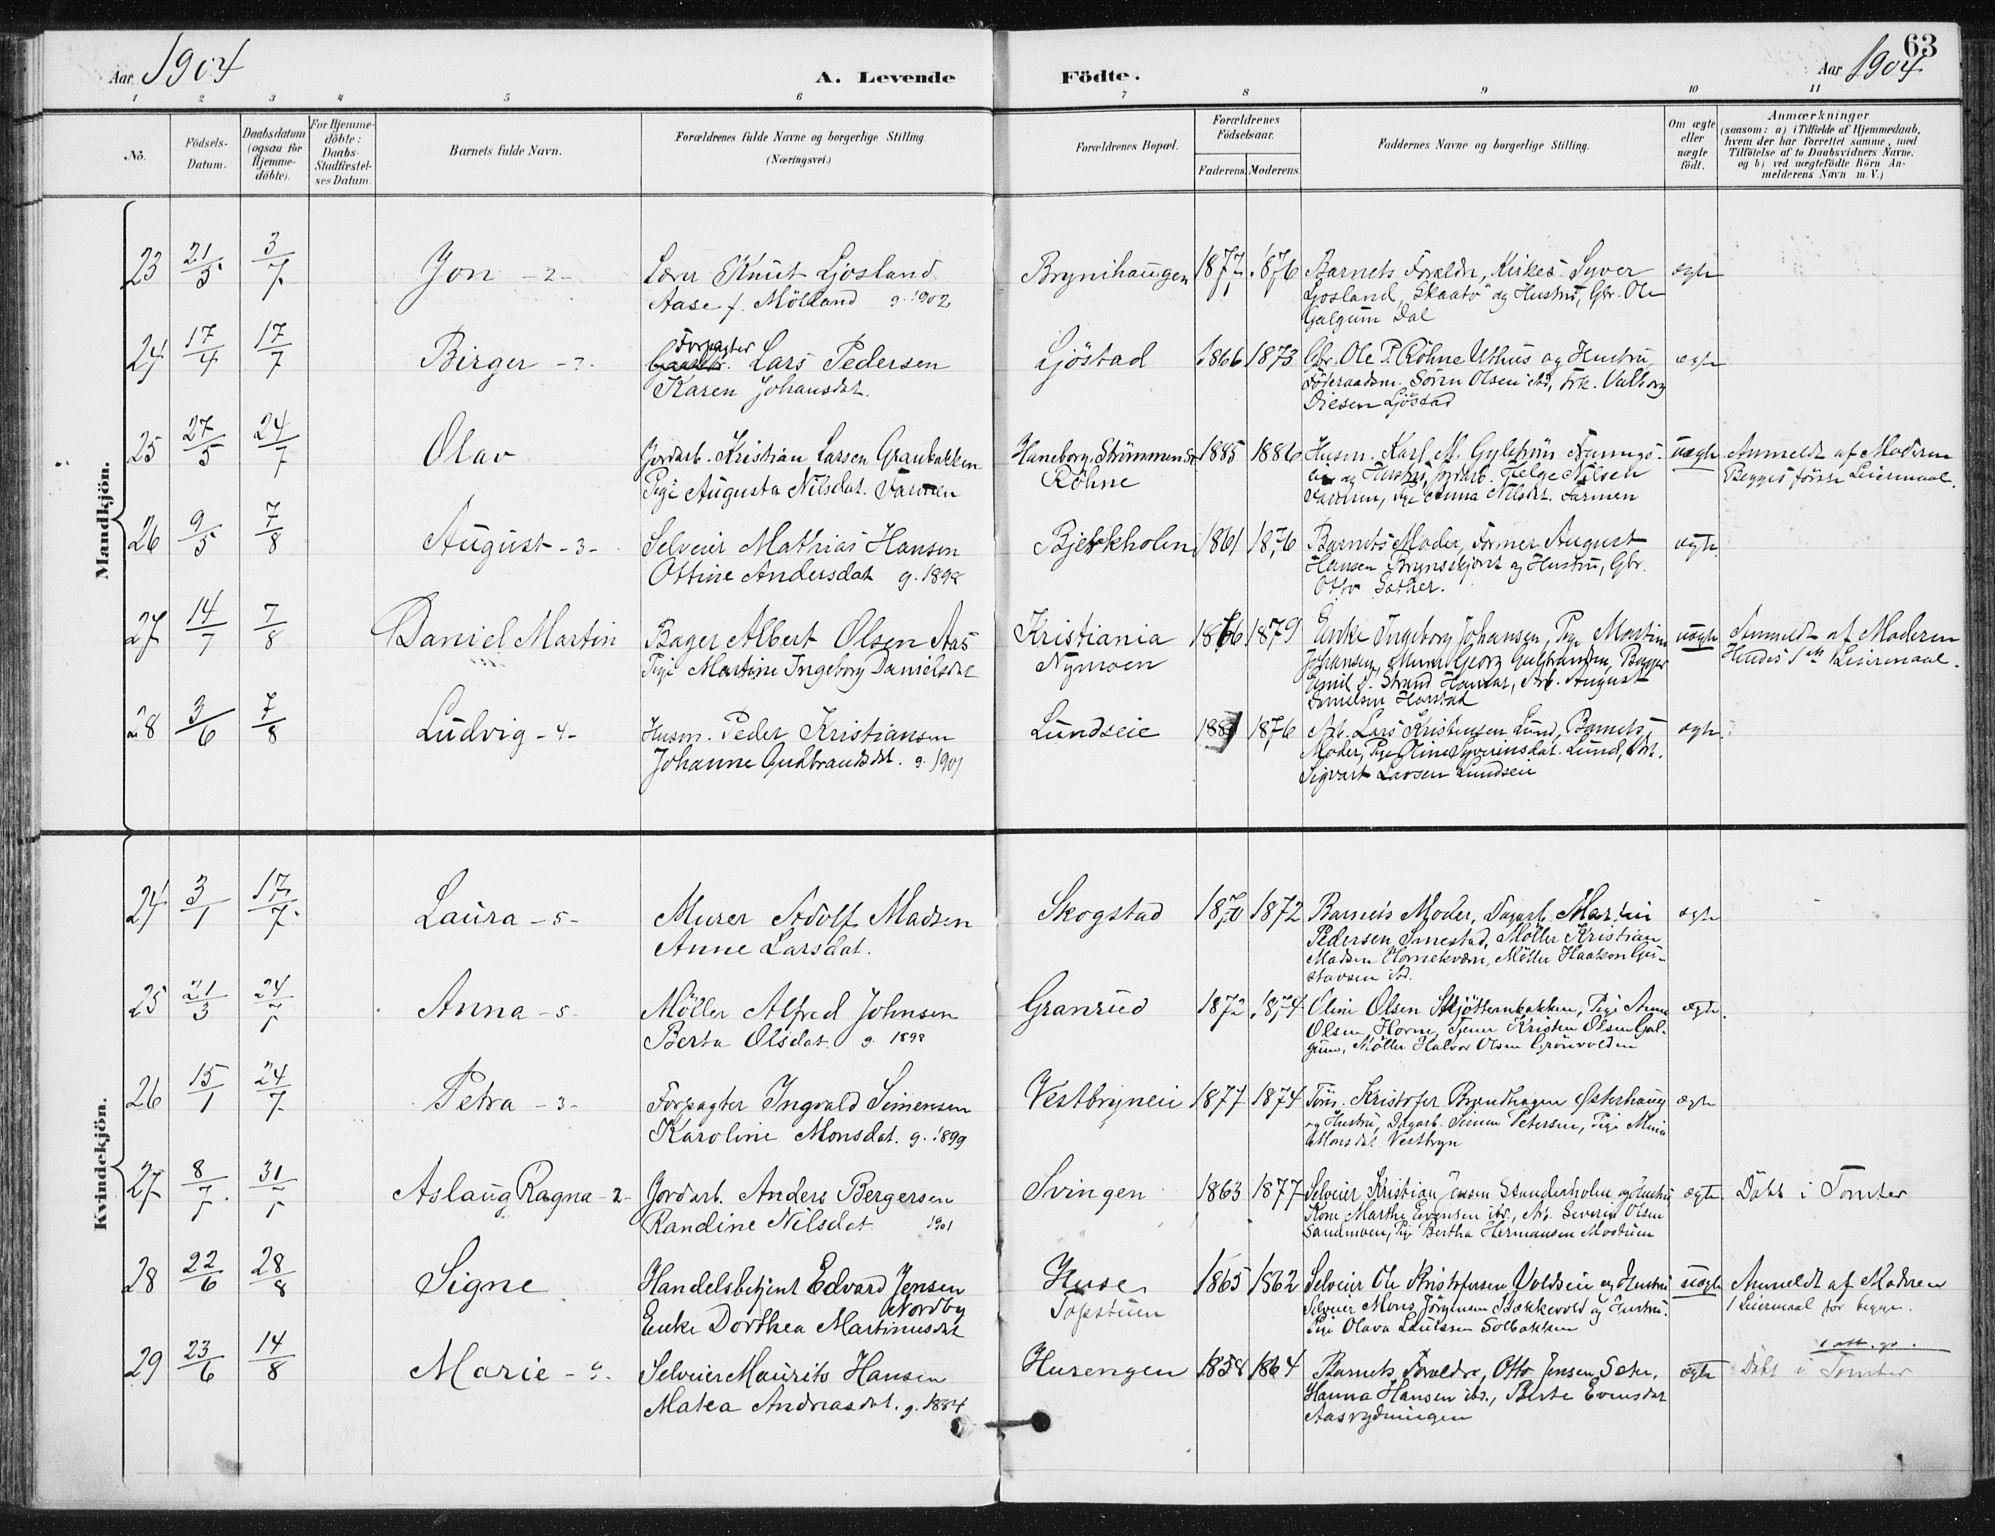 Aar 1904 A. Levende Födte. Aar 1904 63
1 2 3 4 5 6 7 8 9 10 11
No. Födsels-Datum. Daabsdatum (ogsaa for Hjemmedöbte). For Hjemmedöbte: Daabs-Stadfæstelses Datum. Barnets fulde Navn. Forældrenes fulde Navne og borgerlige Stilling. (Næringsvei.) Forældrenes Bopæl. Forældrenes Födselsaar. Faderens. Moderens. Faddernes Navne og borgerlige Stilling. Om ægte eller uægte födt. Anmærkninger (saasom: a) i Tilfælde af Hjemmedaab, hvem der har forrettet samme, med Tilföielse af to Daabsvidners Navne, og b) ved uægtefödte Börn Anmelderens Navn m. V.)
Mandkjön.
23 21/5 3/7 Jon - 2 - Lærer Knut Ljosland Brynihaugen 1877 1876 Barnets Forældre, Kirkes. Syver ægte
Aase f. Mölland g. 1902 Ljosland, "Skaatö" og Hustru, Gbr. Ole
Galgum Dal
24 17/4 17/7 Birger Forpagter Lars Pedersen Ljöstad 1866 1873 Gbr. Ole P. Röhne Uthus og Hustru ægte
Karen Johansdat. Föderaadsm. Sören Olsen ibd, Frk. Valborg
Diesen Ljöstad
25 27/5 24/7 Olav Jordarb. Kristian Larsen Granbakken Haneborg, Strömmen 1885 1886 Husm. Karl M. uægte Anmeldt af Moderen
Pige Augusta Nilsdat. Röhne og Hustru, Jordarb. Helge Nilsen Begges förste Leiermaal.
Pige Anna Nilsdt.
26 9/5 7/8 August - 3 - Selveier Mathias Hansen Bjerkholm 1861 1876 Barnets Moder, Former August ægte
Ottine Andersdat g. 1898 Hansen og Hustru, Gbr.
Otto Sæther.
27 14/7 7/8 Daniel Martin Bager Albert Olsen Aas Kristiania 1879 Enke Ingeborg Johansen, Pige Martine uægte Anmeldt af Moderen
Pige Martine Ingeborg Danielsdat Nymoen Johansen, Georg Gulbrandsen, Hendes 1ste Leiermaal.
Emil Strand August
Harstad
28 3/6 7/8 Ludvig - 4 - Husm. Peder Kristiansen Lundseie 1876 Arb. Lars Kristensen Lund, Barnets ægte
Johanne Gulbrandsdat. g. 1901 Moder, Pige Oline Syverinsdat. Lund,
Sigvart Larsen Lundseie
Kvindekjön.
24 3/1 17/7 Laura - 5 - Murer Adolf Madsen Skogstad 1870 1872 Barnets Moder, Dagarb. Martin ægte
Anne Larsdat. Pedersen Smestad, Möller Kristian
Madsen Hornekværn, Möller Haakon Gustavsen ibd.
25 21/3 24/7 Anna - 5 - Möller Alfred Johnsen Granrud 1872 1874 Oline Olsen Pige Anna ægte
Berta Olsdat. g. 1898 Olsen, Horne, Tjener Kristen Olsen Galgum, Möller Halvor Olsen Grönvolden
26 15/1 24/7 Petra - 3 - Forpagter Ingvald Simensen Vestbryneie 1877 1874 Kristofer Brynhagen Østerhaug ægte
Karoline Monsdat. g. 1899 og Hustru, Dagarb. Simen Petersen, Pige Mina
Monsdat Vestbryn
27 8/7 31/7 Aslaug Ragna - 2 - Jordarb. Anders Bergersen Svingen 1863 1877 Selveier Kristian Jensen og Hustru ægte Döbt i Tomter
Randine Nilsdat 1901 Kone Marthe Evensen ibd., Arb. Severin Olsen
Sandmoen, Pige Bertha Hermansen Mostuen
28 22/6 28/8 Signe Handelsbetjent Edvard Jensen Huse 1865 1862 Selveier Ole Kristofersen Voldseie og Hustru uægte Anmeldt af Moderen
Nordby
Enke Dorthea Martinusdat Topstuen Selveier Mons Jörgensen Bækkevold og Hustru. 1 Leiermaal for begge.
Pige Olava Lauesen Solbakken
29 23/6 14/8 Marie Selveier Maurits Hansen Husengen 1858 1864 Barnets Forældre, Otto Jensen Sæter, ægte Döbt i Tomter
Matea Andreasdat. g. 1884 Hanna Hansen ibd., Berte Evensdat
Aasrydningen